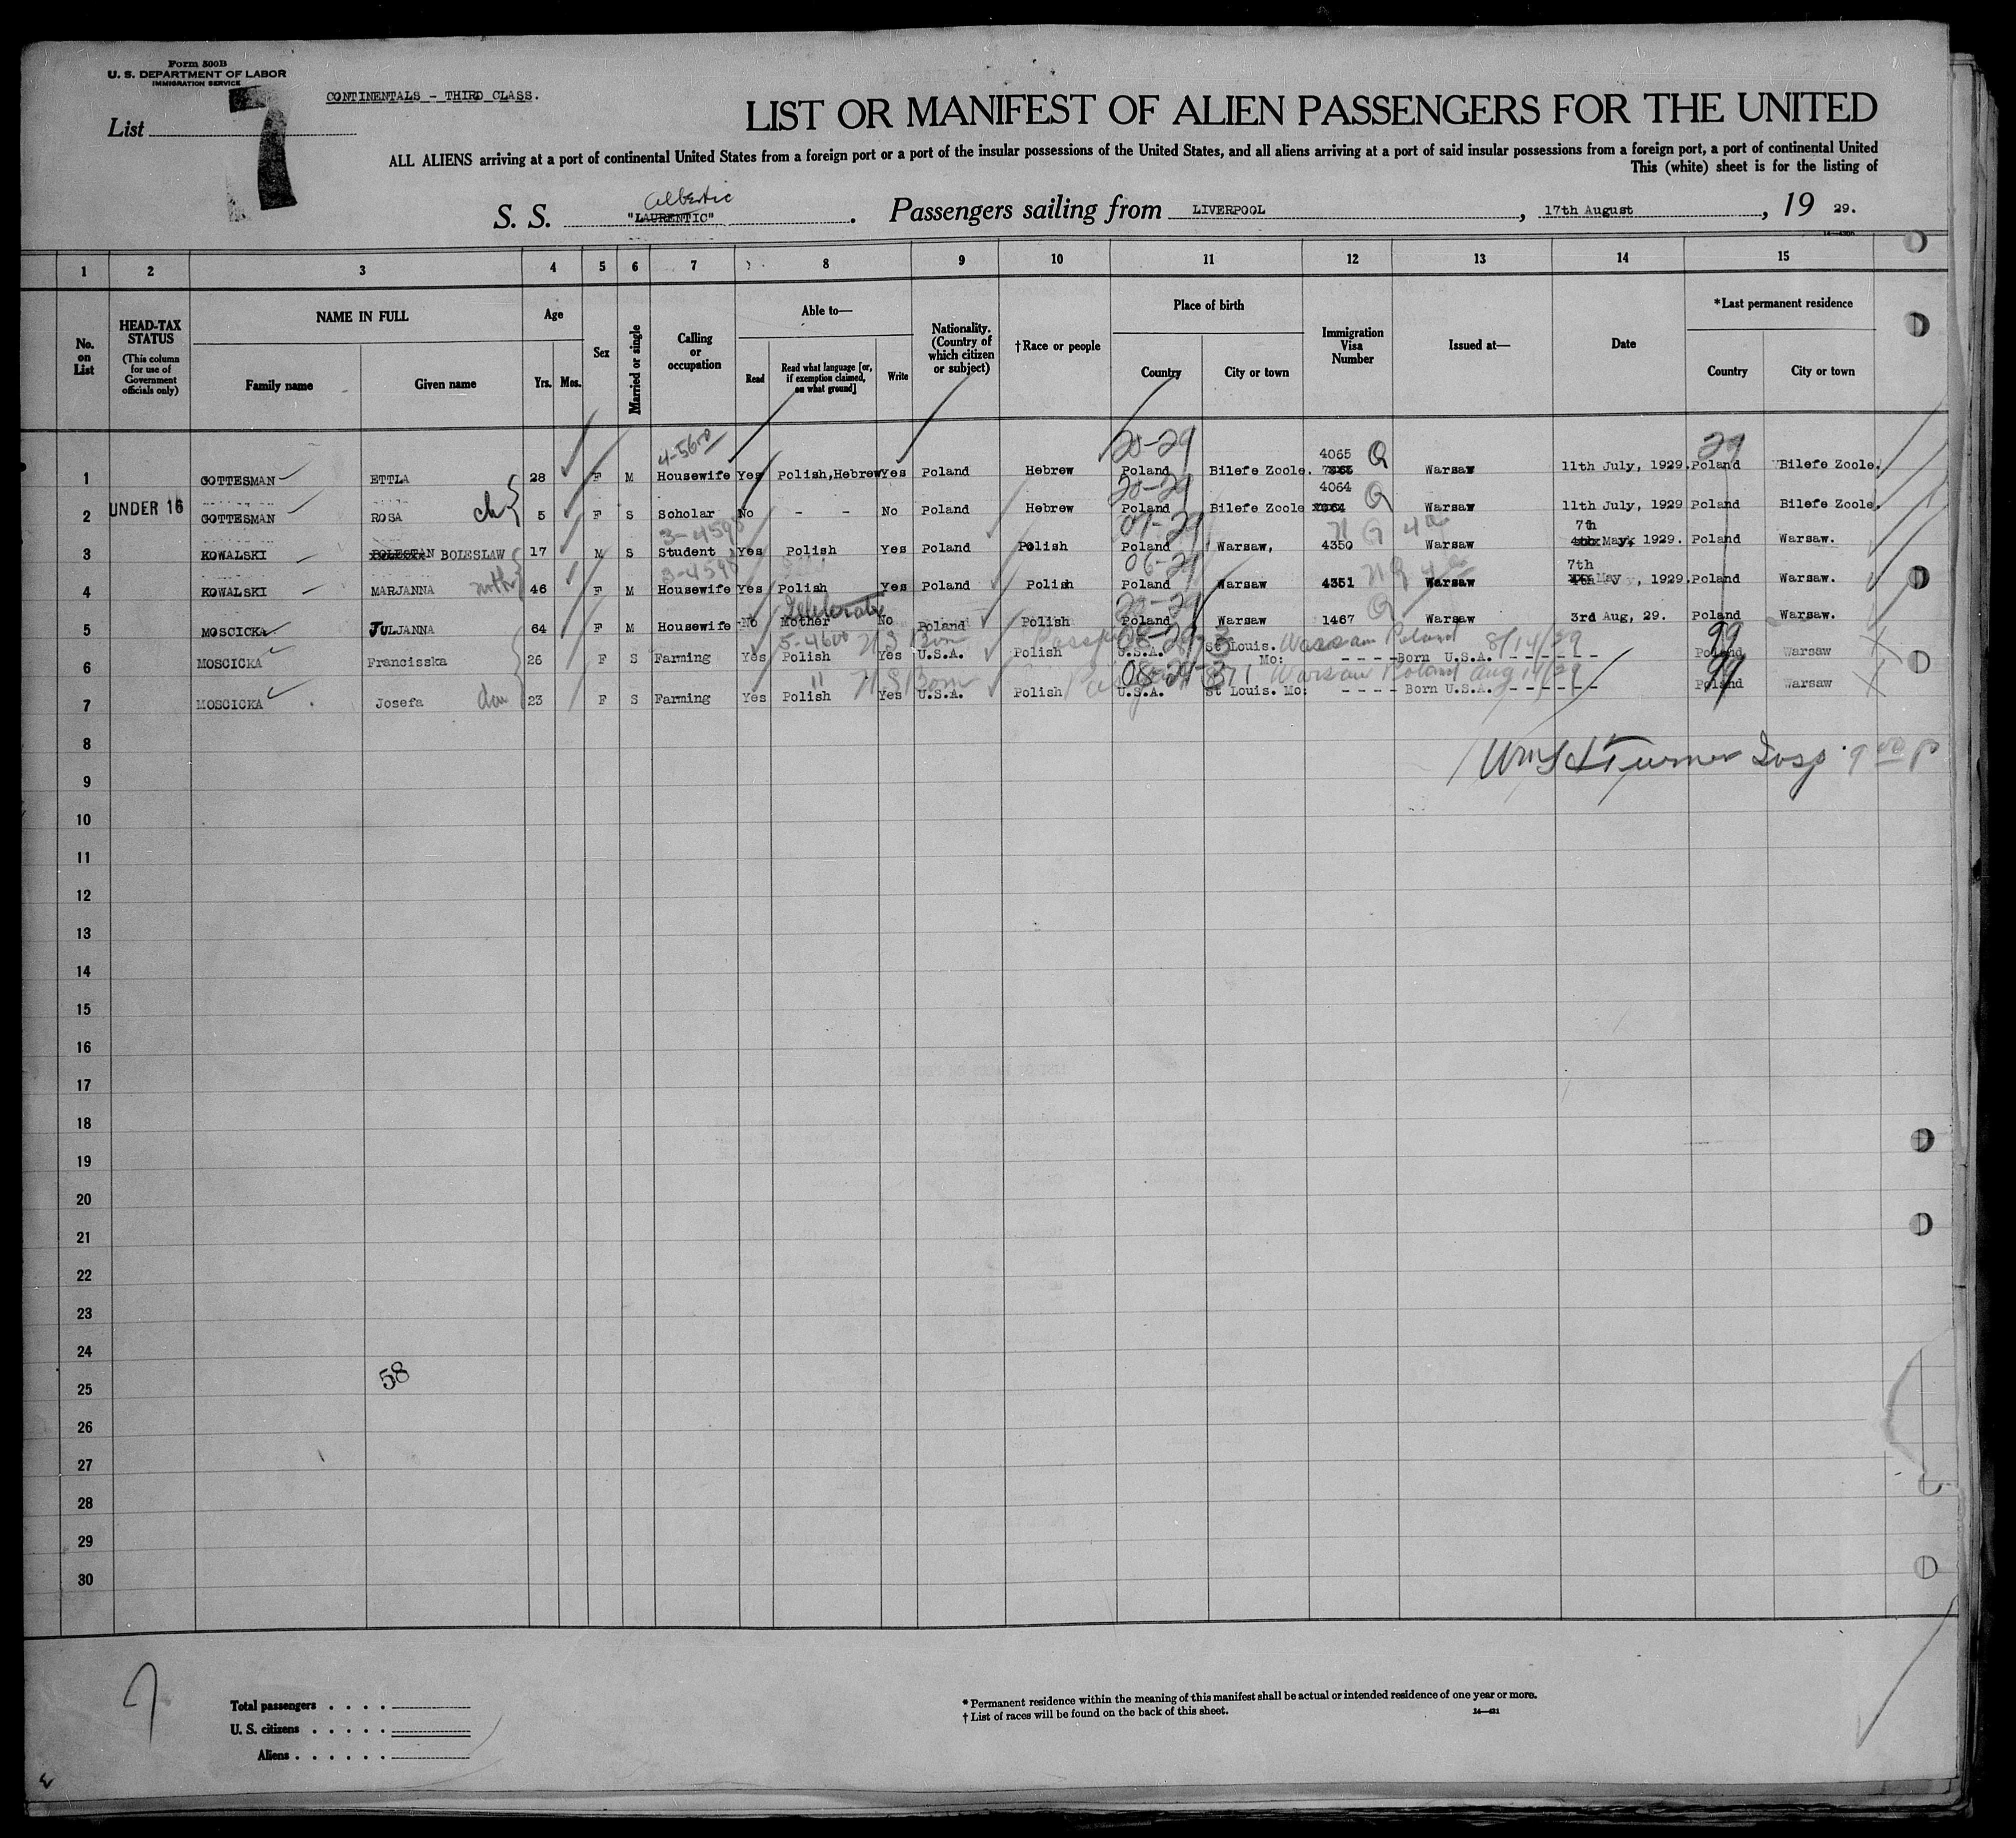 Form 500B
U. S. DEPARTMENT OF LABOR
IMMIGRATION SERVICE
CONTINENTALS - THIRD CLASS.
List 7
LIST OR MANIFEST OF ALIEN PASSENGERS FOR THE UNITED
ALL ALIENS arriving at a port of continental United States from a foreign port or a port of the insular possessions of the United States, and all aliens arriving at a port of said insular possessions from a foreign port, a port of continental United
This (white) sheet is for the listing of
Albertic
S. S. "LAURENTIC". Passengers sailing from LIVERPOOL, 17th August, 19 29.
1 2 3 4 5 6 7 8 9 10 11 12 13 14 15
No. on List
HEAD-TAX STATUS (This column for use of Government officials only)
NAME IN FULL
Family name
Given name
Age
Yrs. Mos.
Sex
Married or single
Calling or occupation
Able to—
Read
Read what language [or, if exemption claimed, on what ground]
Write
Nationality. (Country of which citizen or subject)
†Race or people
Place of birth
Country
City or town
Immigration Visa Number
Issued at—
Date
*Last permanent residence
Country
City or town
4-5600 20-29 4065 Q 29
1 GOTTESMAN ETTLA 28 F M Housewife Yes Polish,Hebrew Yes Poland Hebrew Poland Bilefe Zoole. Warsaw 11th July, 1929. Poland Bilefe Zoole.
20-29 4064 Q
2 UNDER 16 GOTTESMAN ROSA ch 5 F S Scholar No - - No Poland Hebrew Poland Bilefe Zoole Warsaw 11th July, 1929 Poland Bilefe Zoole.
3-4590 07-29 7th
3 KOWALSKI BOLESLAW 17 M S Student Yes Polish Yes Poland Polish Poland Warsaw, 4350 Warsaw May, 1929. Poland Warsaw.
3-4590 06-29 7th
4 KOWALSKI MARJANNA moth 46 F M Housewife Yes Polish Yes Poland Polish Poland Warsaw 4351 Warsaw May, 1929. Poland Warsaw.
20-29 Q
5 MOSCICKA JULJANNA 64 F M Housewife No Mother No Poland Polish Poland Warsaw 1467 Warsaw 3rd Aug, 29. Poland Warsaw.
5-4600 US Born 08-29 Warsaw Poland 8/14/29 99
6 MOSCICKA Francisska 26 F S Farming Yes Polish Yes U.S.A. Polish U.S.A. St Louis. Mo: - - - - Born U.S.A. - - - - - - Poland Warsaw
" US Born 08-29 Warsaw Poland Aug 14/29 99
7 MOSCICKA Josefa dau 23 F S Farming Yes Polish Yes U.S.A. Polish U.S.A. St Louis. Mo: - - - - Born U.S.A. - - - - - - Poland Warsaw
8
Turner Insp.
9
10
11
12
13
14
15
16
17
18
19
20
21
22
23
24
58
25
26
27
28
29
30
Total passengers . . . .
U. S. citizens . . . . .
Aliens . . . . . .
* Permanent residence within the meaning of this manifest shall be actual or intended residence of one year or more.
† List of races will be found on the back of this sheet.
14—421